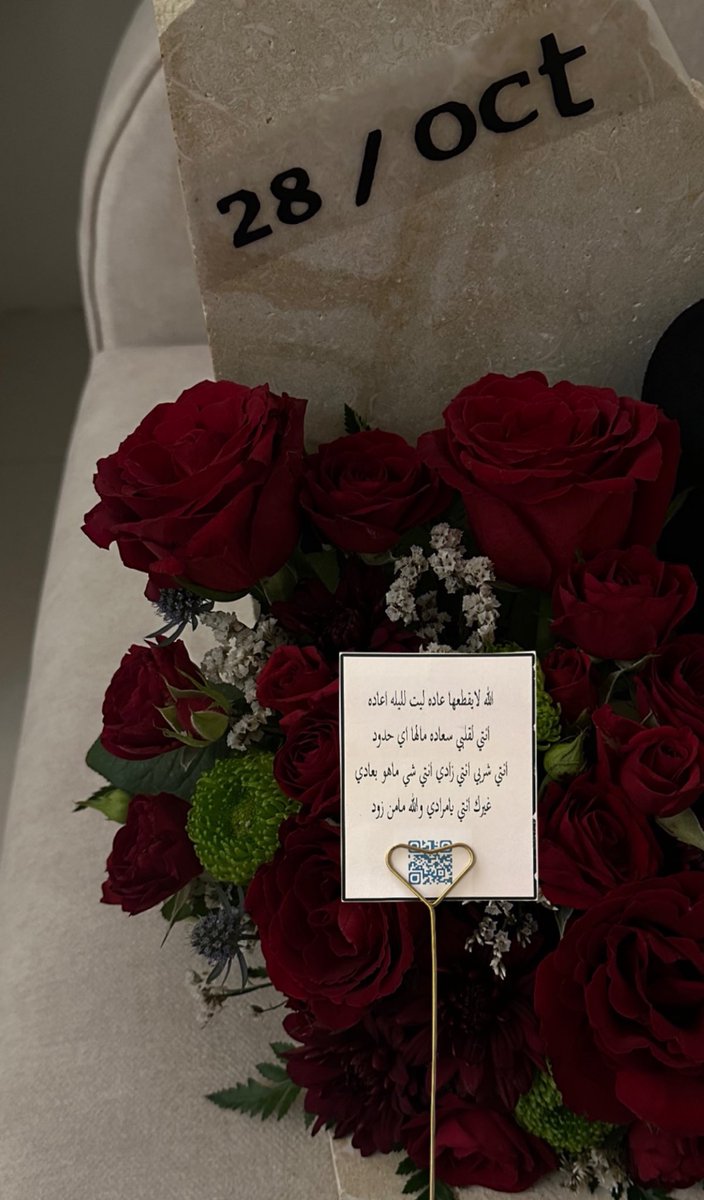 28 / oct
الله لايقطعها عاده ليت لليله اعاده
انتي لقلبي سعاده مالها اي حدود
انتي شربي انتي زادي انتي شي ماهو بعادي
غيرك انتي يامرادي والله مامن زود